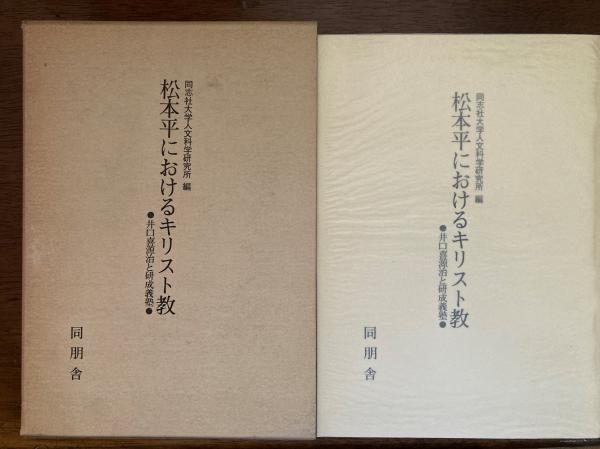 同志社大学人文科学研究所 編
松本平におけるキリスト教
●井口喜源治と研成義塾●
同朋舎
同志社大学人文科学研究所 編
松本平におけるキリスト教
●井口喜源治と研成義塾●
同朋舎